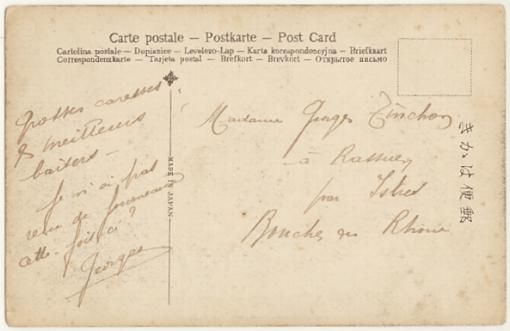 Carte postale — Postkarte — Post Card
Cartolina postale — Dopisnice — Levelezo-Lap — Karta korespondencyjna — Briefkaart
Correspondenzkarte — Tarjeta postal — Brefkort — Brevkort — Открытое письмо
Grosses caresses
& meilleurs
baisers —
Je n'ai pas
reçu de
cette fois ci ?
Georges
MADE IN JAPAN
Madame Georges
à Rassuen
par Istres
Bouches du Rhône
きかは便郵